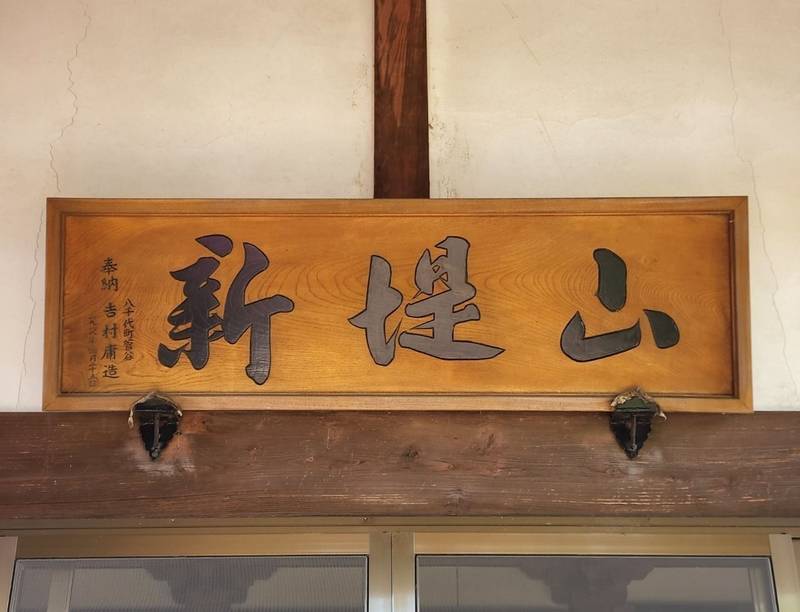 新堤山
八千代町菅谷
奉納 吉村庸造